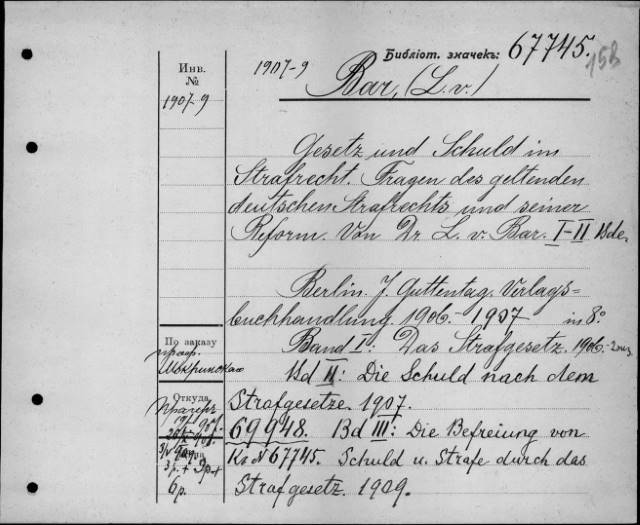 Библіот. значекъ: 67745.
158
Инв.
№
1907-9
1907-9
Bar, (L. v.)
Gesetz und Schuld im
Strafrecht. Fragen des geltenden
deutschen Strafrechts und seiner
Reform. Von Dr. L. v. Bar. I-II Bde.
Berlin. J. Guttentag, Verlags=
buchhandlung. 1906.- 1907 in 8º.
По заказу
Band I: Das Strafgesetz. 1906.-
Bd II: Die Schuld nach dem
Откуда
Strafgesetze. 1907.
69948. Bd III: Die Befreiung von
Ко № 67745. Schuld u. Strafe durch das
3р. + 3р.+
6р.
Strafgesetz. 1909.